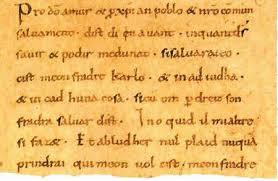 Pro dõ amur & p xp̃ian poblo & nr̃o cõmun
saluament. dist di en auant. inquantdš
sauir & podir medunat. sisaluaraieo.
cist meon fradre karlo. & in ad iudha.
& in cad huna cosa. sicũ om p dreit son
fradra saluar dist. Ino quid il mialtre
si fazet. Et abludher nul plaid nuqua
prindrai qui meon uol cist. meon fradre